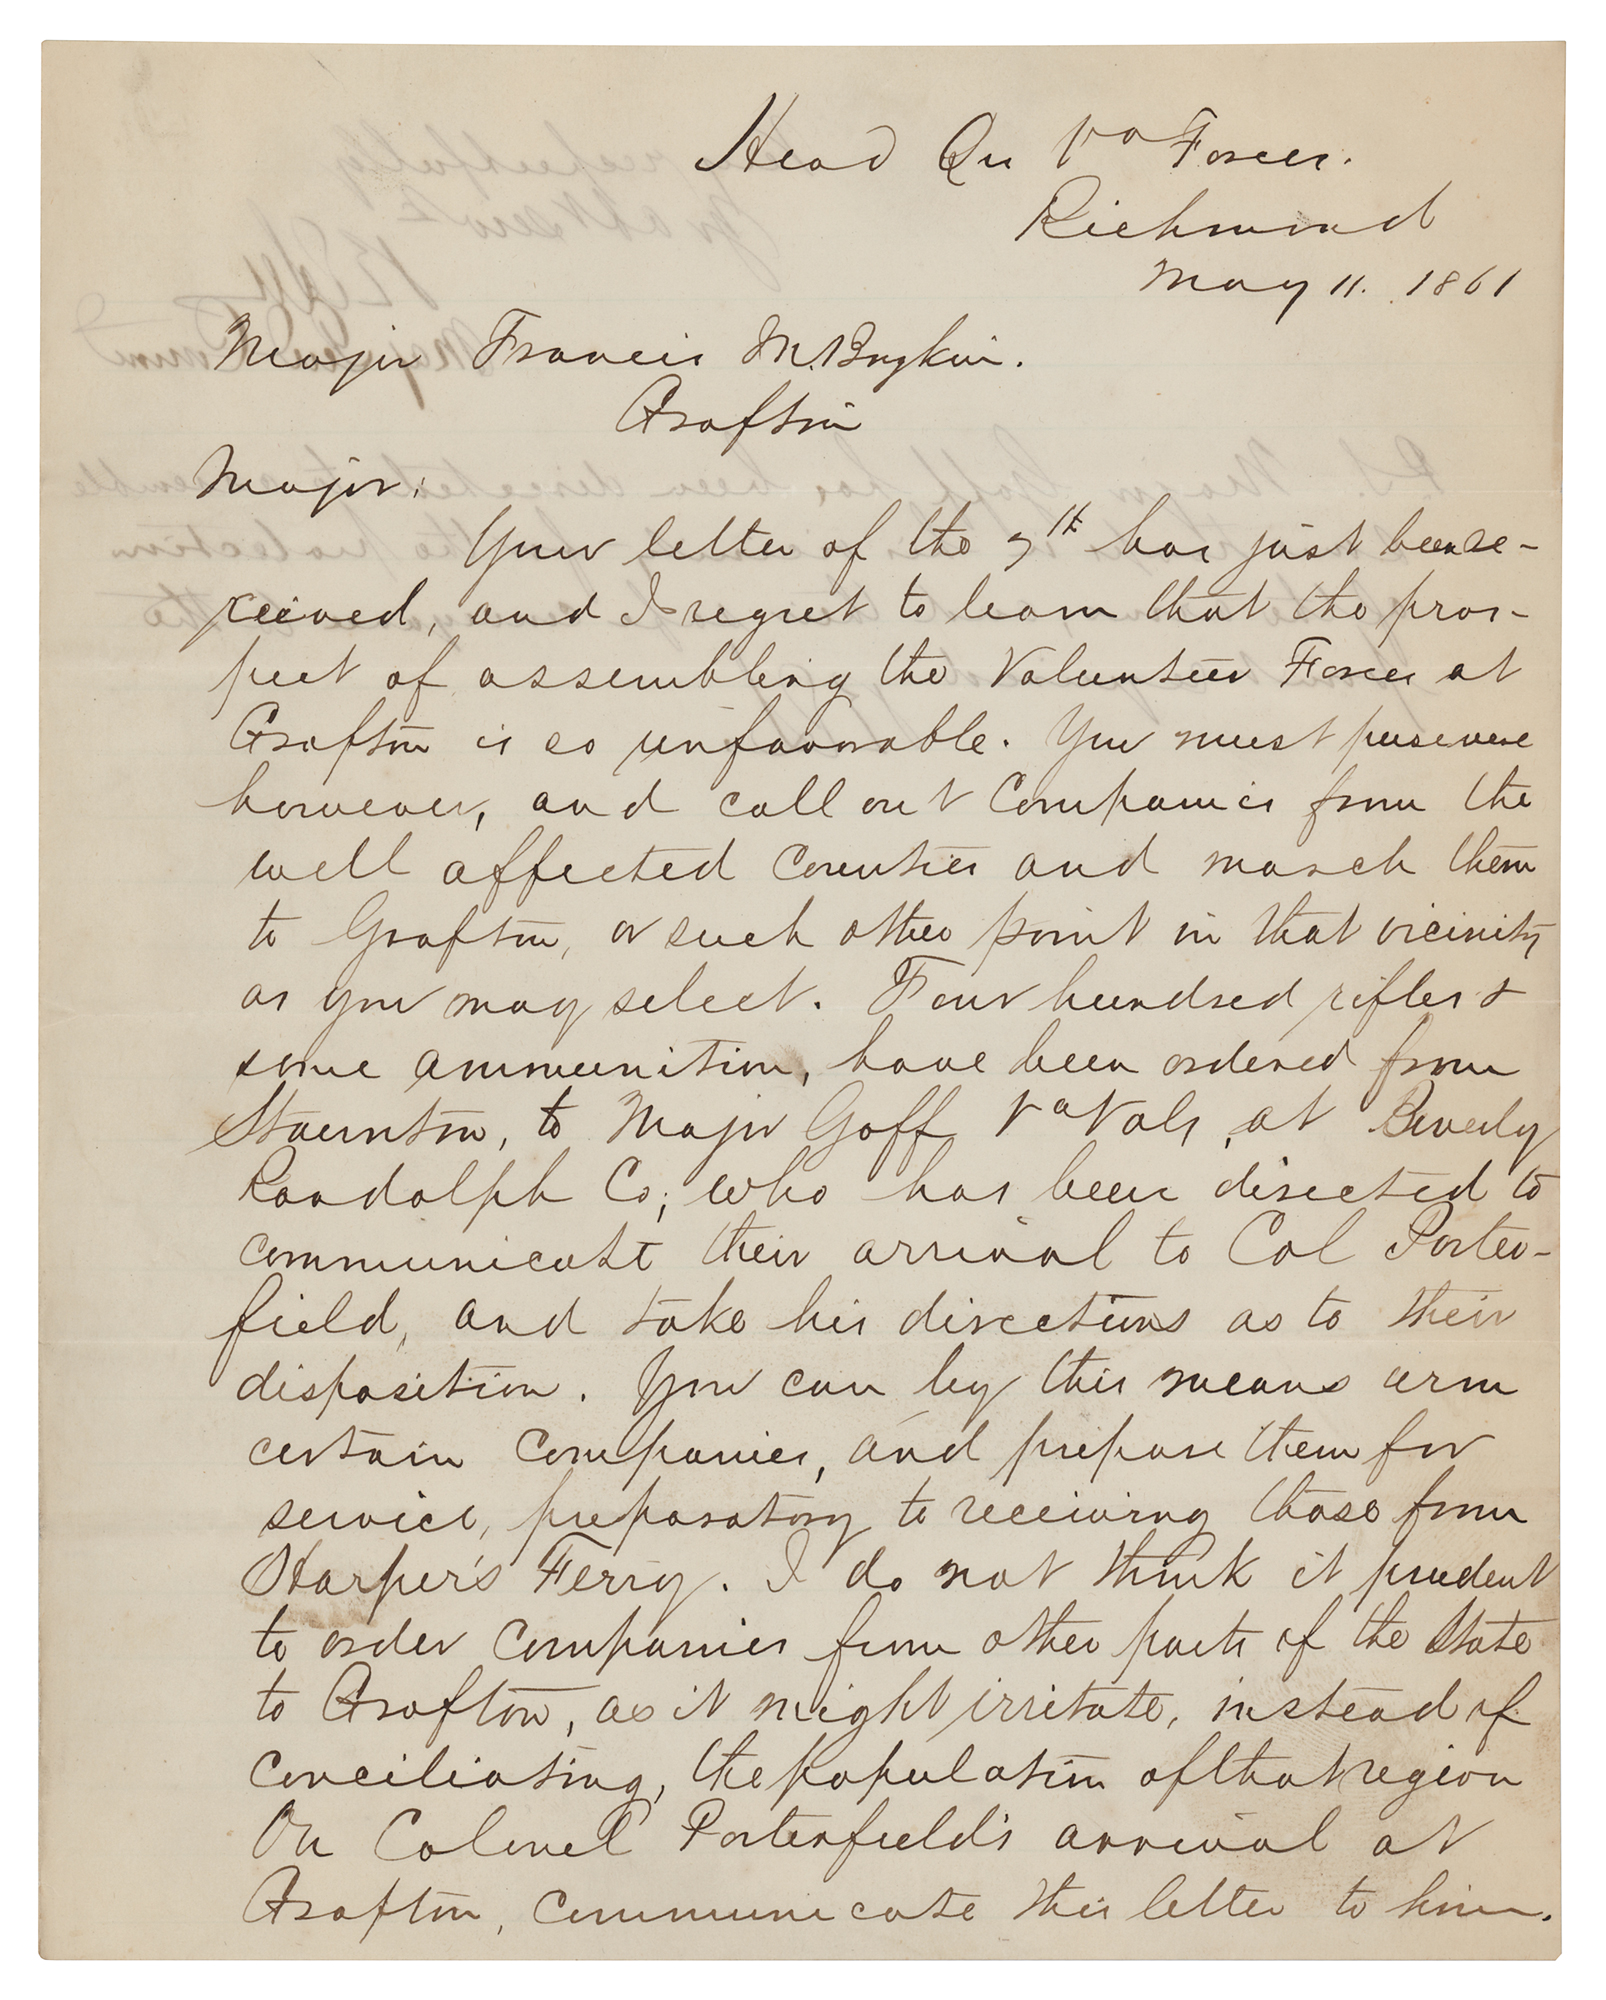 Head Qrs Va Forces.
Richmond
May 11. 1861
Major Francis M. Boykin.
Grafton
Major:
Your letter of the 7th has just been re-
ceived, and I regret to learn that the pros-
pect of assembling the Volunteer Forces at
Grafton is so unfavorable. You must persevere
however, and call out Companies from the
well affected Counties and march them
to Grafton, or such other point in that vicinity
as you may select. Four hundred rifles &
some ammunition, have been ordered from
Staunton, to Major Goff Va Vols, at Beverly
Randolph Co; who has been directed to
communicate their arrival to Col Porter-
field, and take his directions as to their
disposition. You can by this means arm
certain Companies, and prepare them for
service, preparatory to receiving those from
Harper's Ferry. I do not think it prudent
to order Companies from other parts of the State
to Grafton, as it might irritate, instead of
conciliating, the population of that region
On Colonel Porterfield's arrival at
Grafton, communicate this letter to him.